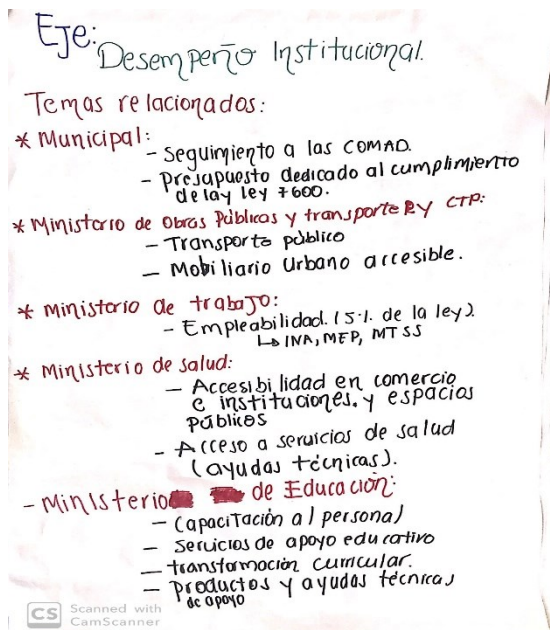 Eje:
Desempeño Institucional.
Temas relacionados:
* Municipal:
- Seguimiento a las COMAD.
- Presupuesto dedicado al cumplimiento
de lay ley 7600.
* Ministerio de Obras Públicas y transporte y CTP:
- Transporte público
- Mobiliario Urbano accesible.
* Ministerio de trabajo:
- Empleabilidad. (5%. de la ley).
↳ INA, MEP, MTSS
* Ministerio de salud:
- Accesibilidad en comercio
e instituciones. y espacios
públicos
- Acceso a servicios de salud
(ayudas técnicas).
- Ministerio de Educación:
- Capacitación al personal
- Servicios de apoyo educativo
- transformación curricular.
- Productos y ayudas técnicas
de apoyo
CS Scanned with
CamScanner